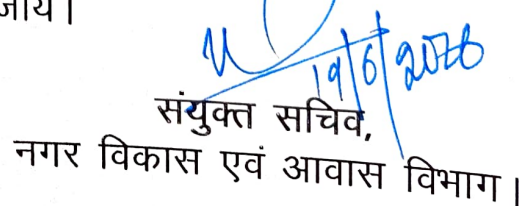 जाय।
19/6/2026
संयुक्त सचिव,
नगर विकास एवं आवास विभाग।